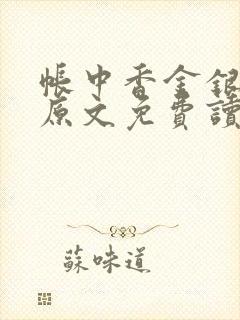 帳中香金銀
原文免費讀
蘇味道